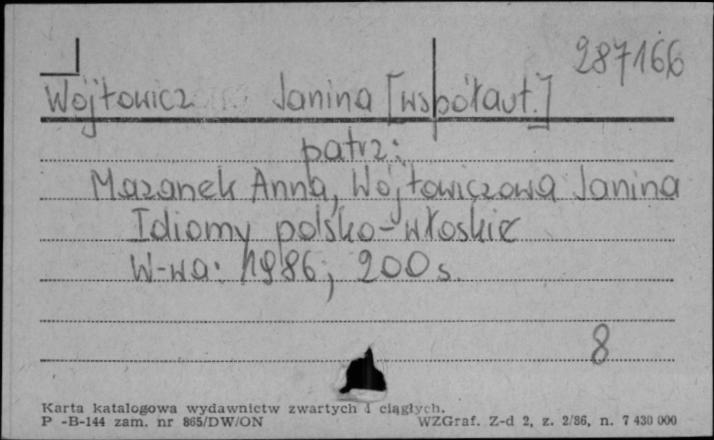 287166
Wójtowicz Janina [współaut.]
patrz:
Mazanek Anna, Wójtowiczowa Janina
Idiomy polsko-włoskie
W-wa: 1986, 200 s.
8
Karta katalogowa wydawnictw zwartych i ciągłych.
P -B-144 zam. nr 865/DW/ON WZGraf. Z-d 2, z. 2/86, n. 7 430 000